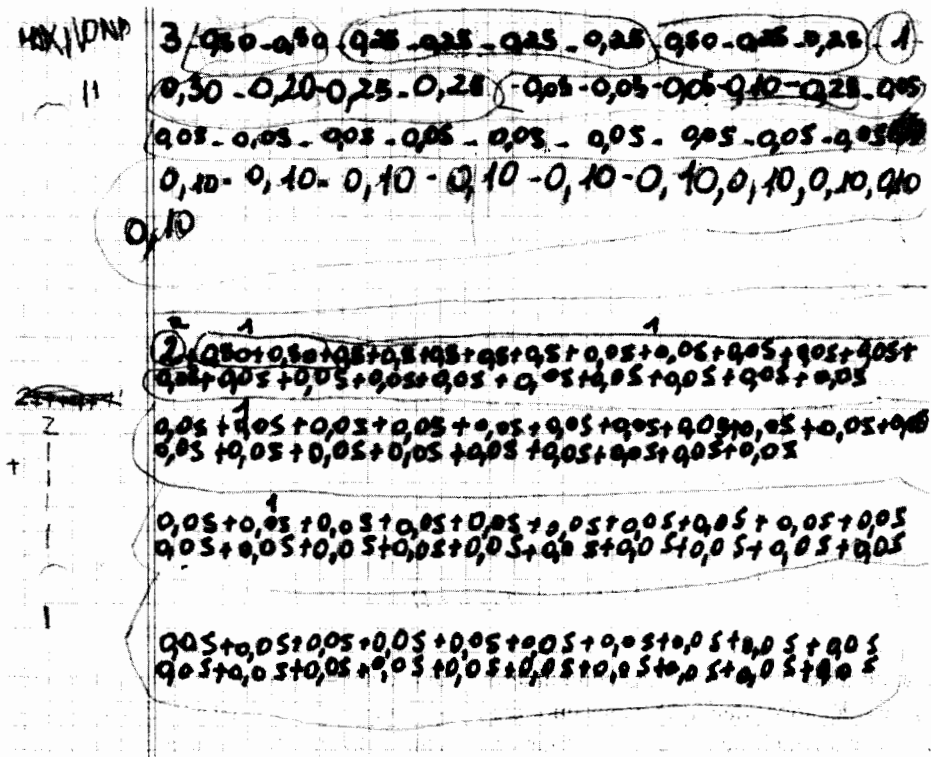 3-0,50-0,50-0,25-0,25-0,25-0,25-0,50-0,25-0,25-1
11 0,30-0,20-0,25-0,25-0,05-0,05-0,05-0,10-0,25-0,05
0,05-0,05-0,05-0,05-0,05-0,05-0,05-0,05-0,05
0,10-0,10-0,10-0,10-0,10-0,10,0,10,0,10,0,10
0,10
1 1
2+0,50+0,50+0,5+0,5+0,5+0,5+0,5+0,05+0,05+0,05+0,05+0,05+
0,05+0,05+0,05+0,05+0,05+0,05+0,05+0,05+0,05+0,05
1
2 0,05+0,05+0,05+0,05+0,05+0,05+0,05+0,05+0,05+0,05+0,05
+ 0,05+0,05+0,05+0,05+0,05+0,05+0,05+0,05+0,05
1
0,05+0,05+0,05+0,05+0,05+0,05+0,05+0,05+0,05+0,05
0,05+0,05+0,05+0,05+0,05+0,05+0,05+0,05+0,05+0,05
1
0,05+0,05+0,05+0,05+0,05+0,05+0,05+0,05+0,05+0,05
0,05+0,05+0,05+0,05+0,05+0,05+0,05+0,05+0,05+0,05